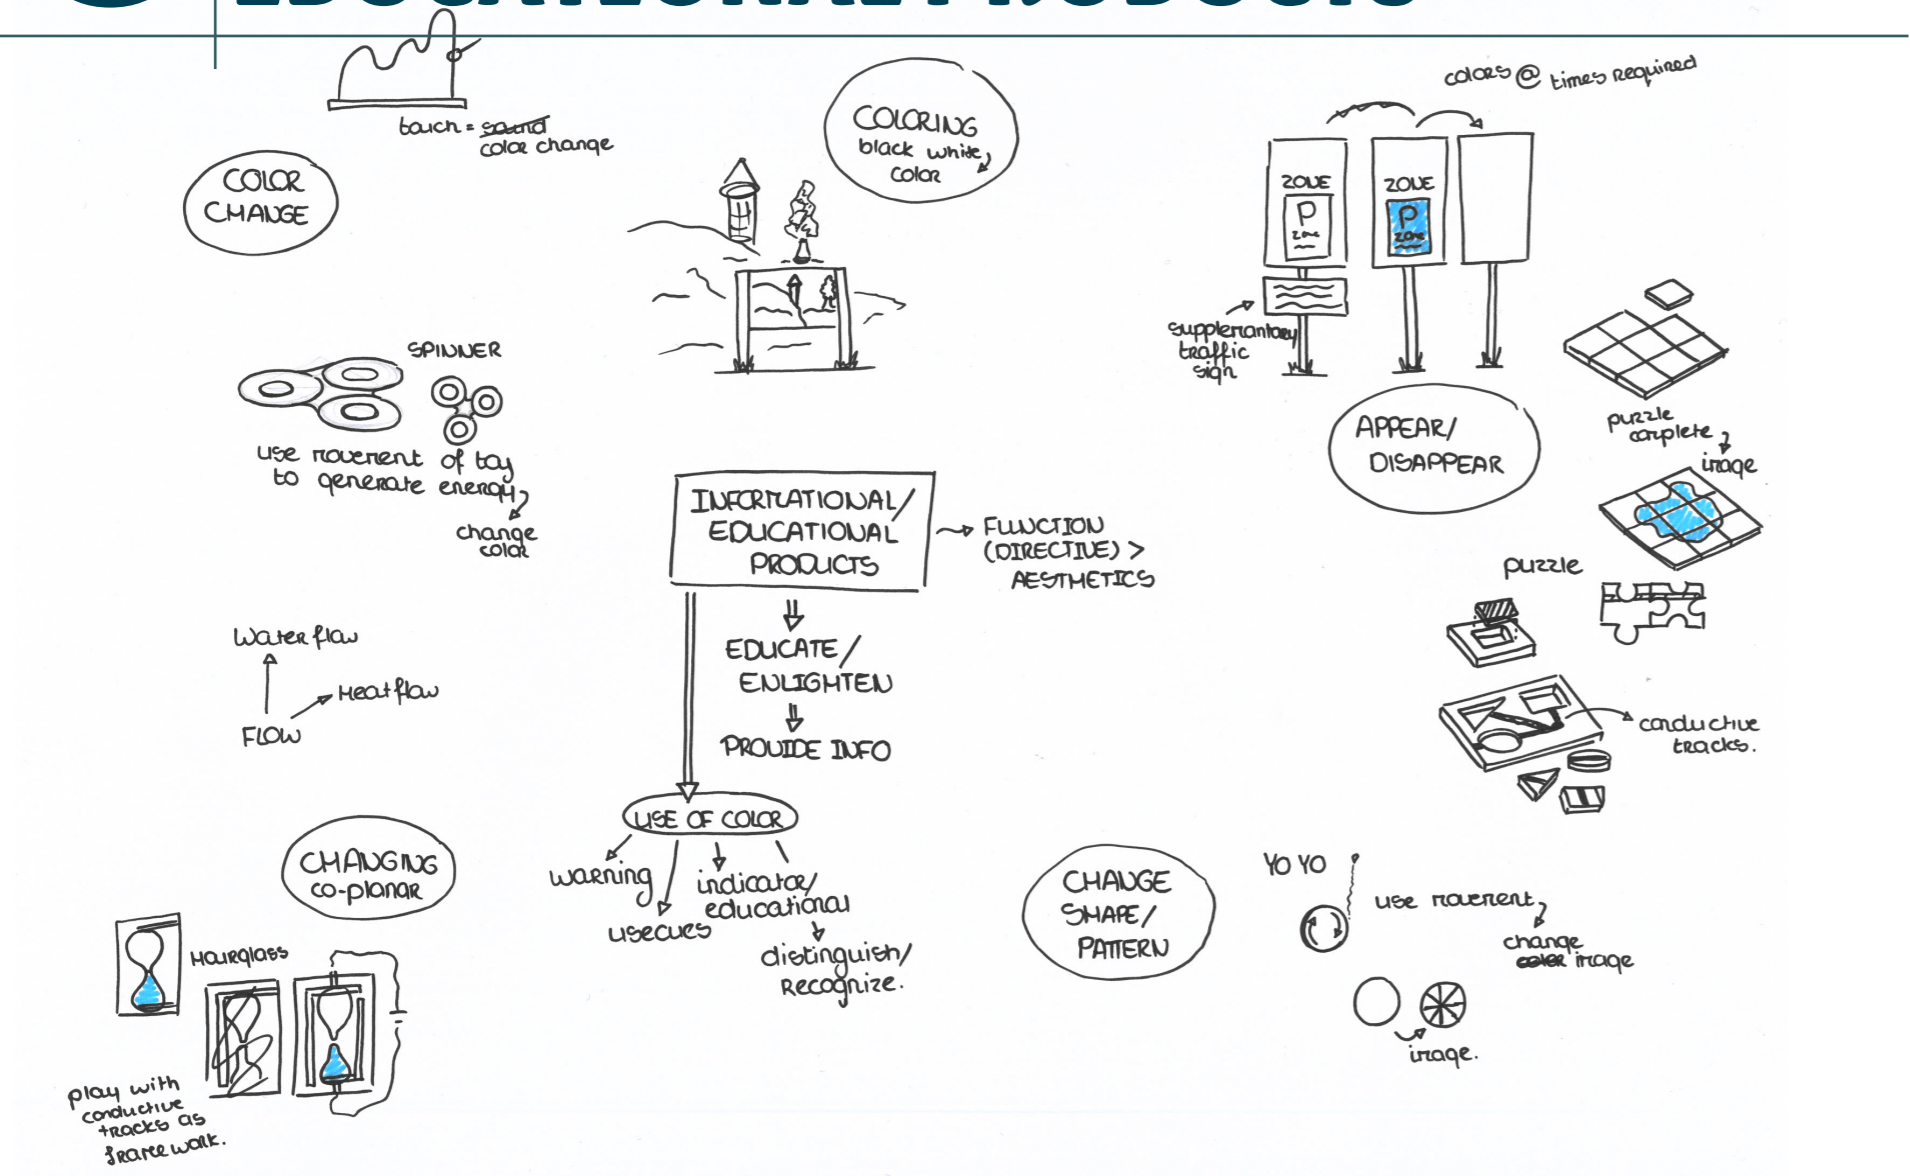 EDUCATIONAL PRODUCTS
touch = sound
color change
COLOR
CHANGE
COLORING
black white
color
colors @ times required
ZONE
P
zone
ZONE
P
zone
supplemantary
traffic
sign
APPEAR/
DISAPPEAR
puzzle
complete
image
puzzle
conductive
tracks.
SPINNER
use movement of toy
to generate energy
change
color
INFORMATIONAL/
EDUCATIONAL
PRODUCTS
FUNCTION
(DIRECTIVE) >
AESTHETICS
EDUCATE/
ENLIGHTEN
PROVIDE INFO
Water flow
Heat flow
FLOW
USE OF COLOR
warning
usecues
indicator/
educational
distinguish/
Recognize.
CHANGING
co-planar
Hourglass
play with
conductive
tracks as
framework.
CHANGE
SHAPE/
PATTERN
YO YO
use movement
change
color image
image.